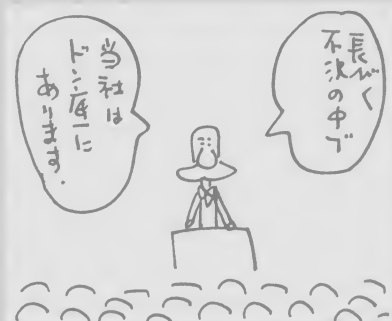 長びく
不況の中で
当社は
ドン底に
あります.